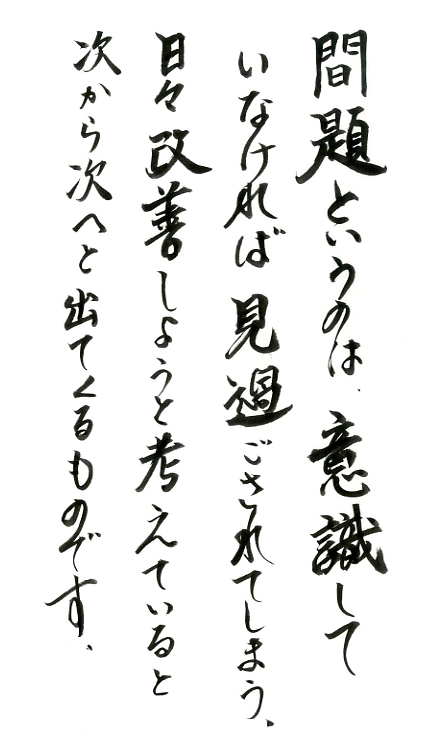 問題というのは、意識して
いなければ見過ごされてしまう、
日々改善しようと考えていると
次から次へと出てくるものです、